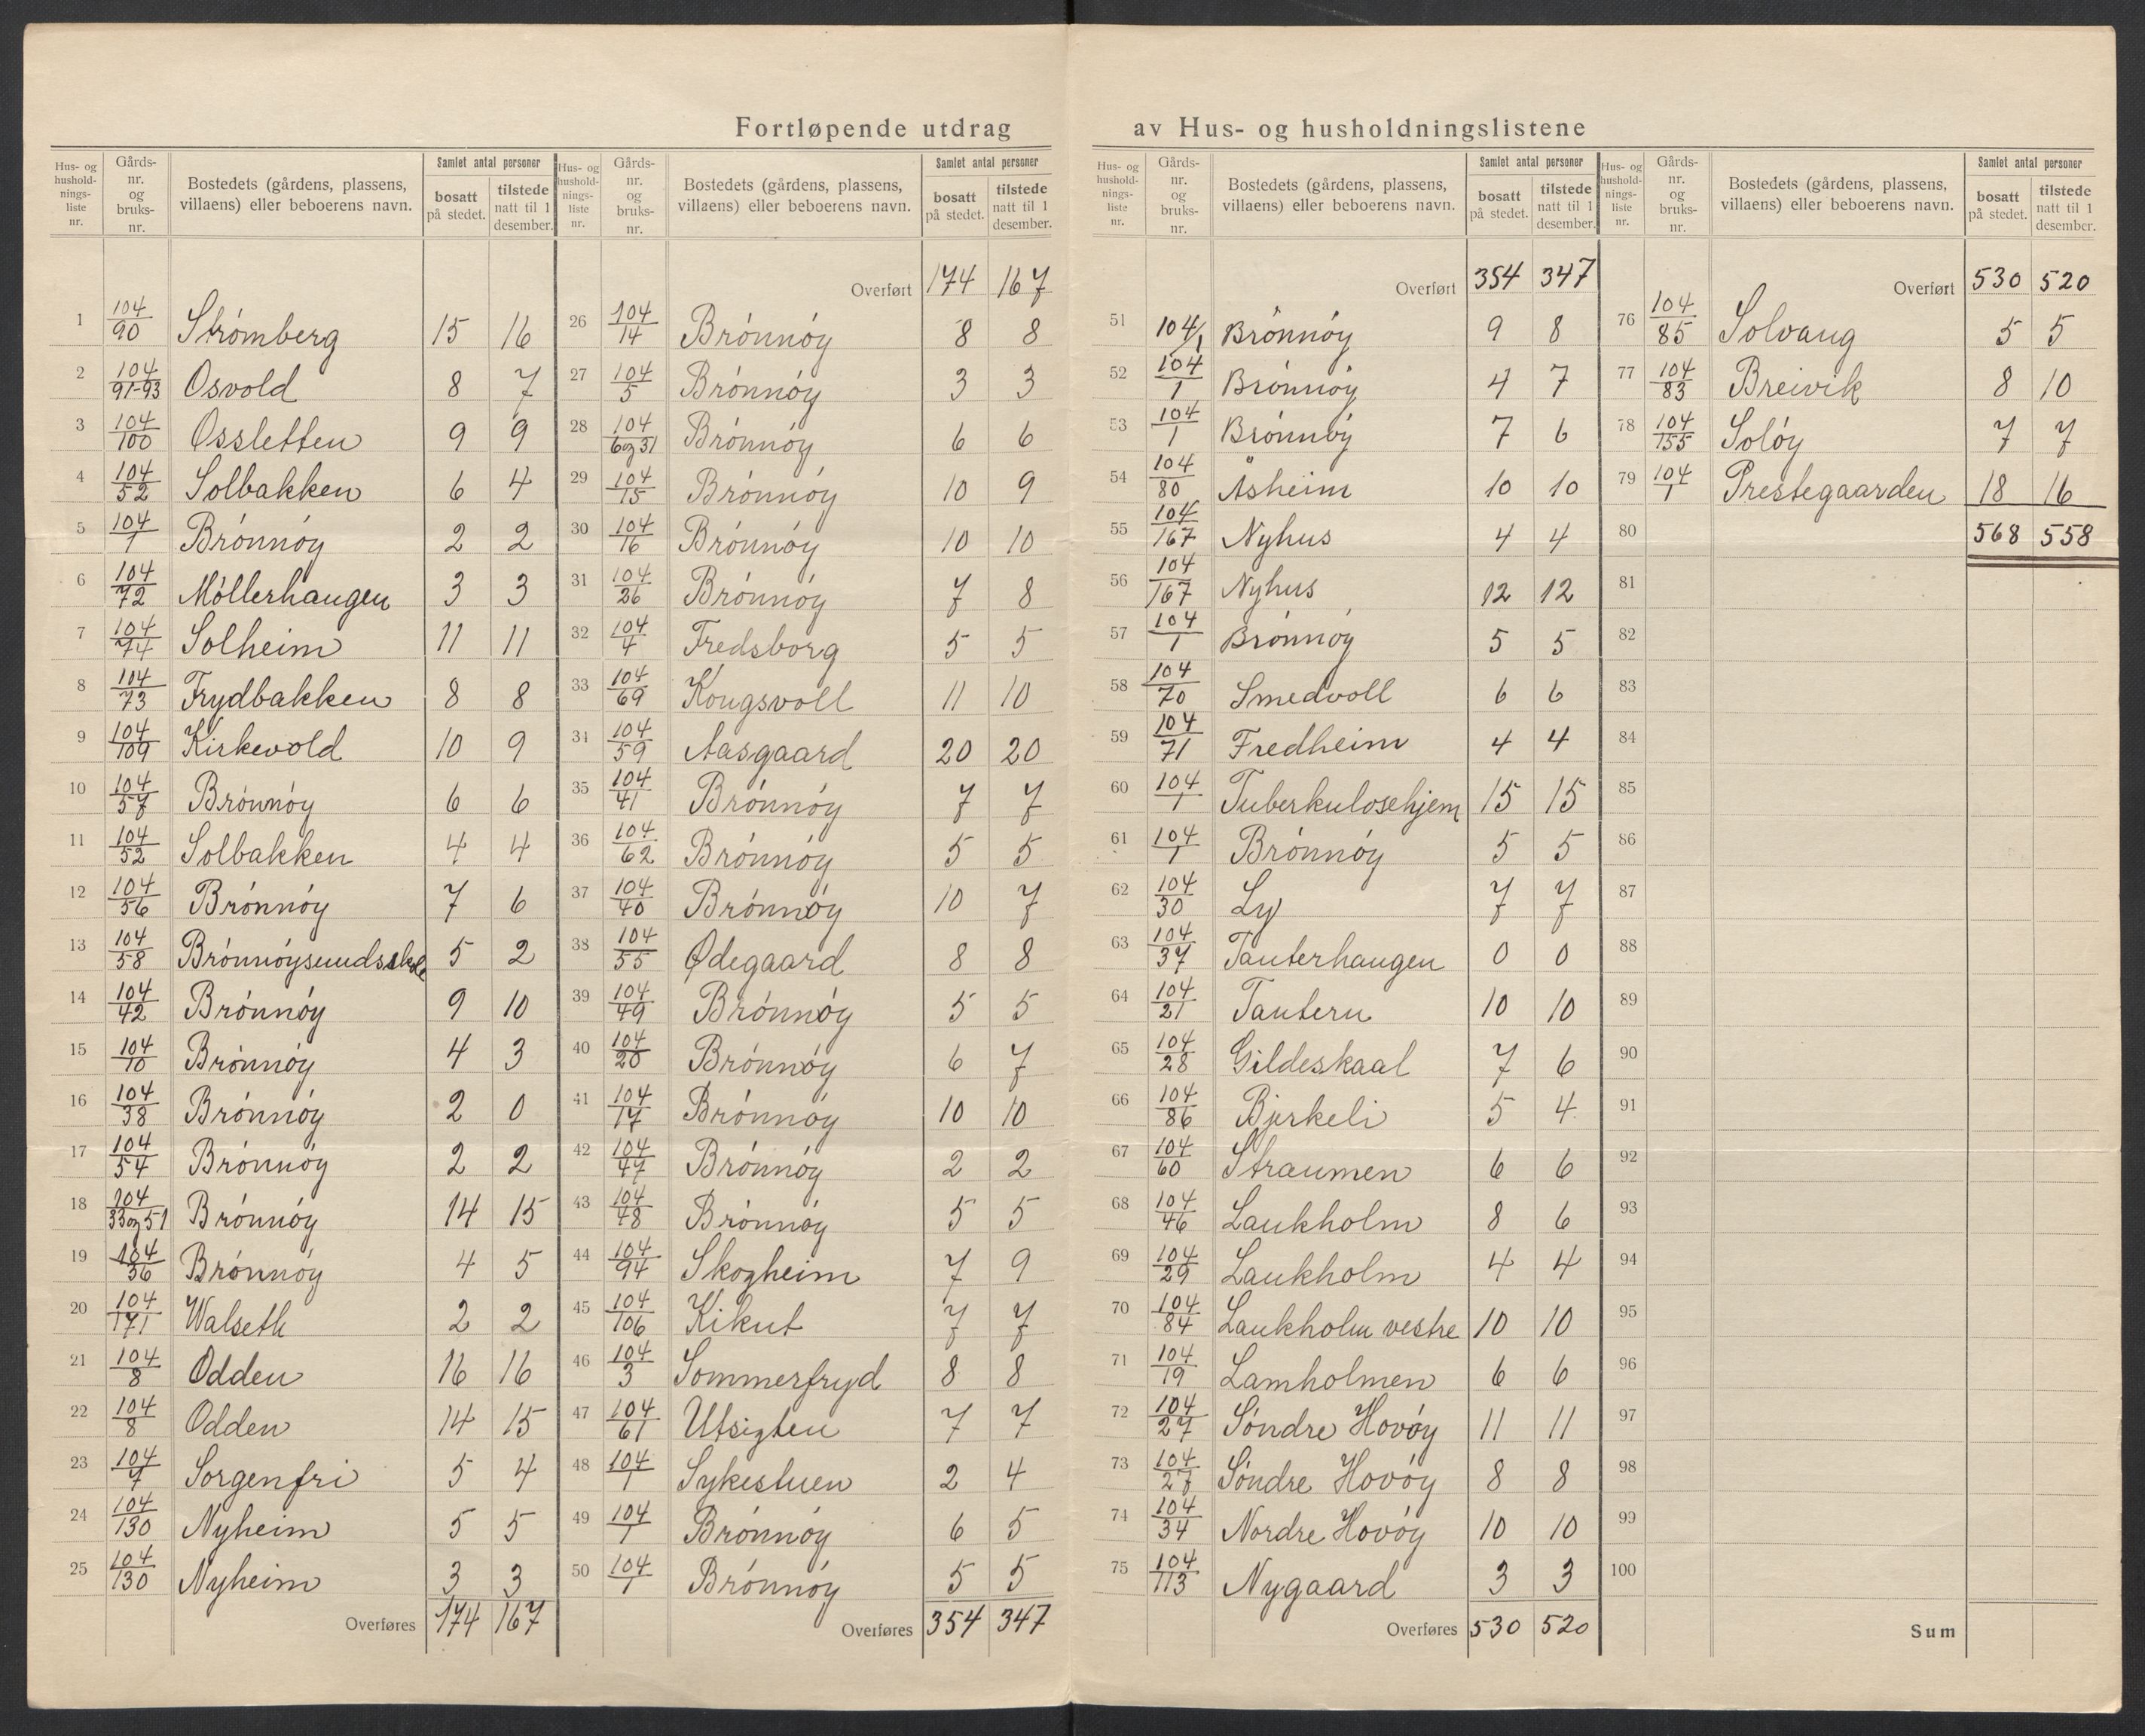 Fortløpende utdrag av Hus- og husholdningslistene
Hus- og husholdnings-liste nr. | Gårds-nr. og bruks-nr. | Bostedets (gårdens, plassens, villaens) eller beboerens navn. | Samlet antal personer: bosatt på stedet. | tilstede natt til 1 desember.
1 | 104/90 | Strømberg | 15 | 16
2 | 104/91-93 | Osvold | 8 | 7
3 | 104/100 | Ossletten | 9 | 9
4 | 104/52 | Solbakken | 6 | 4
5 | 104/1 | Brónnóy | 2 | 2
6 | 104/72 | Móllerhaugen | 3 | 3
7 | 104/74 | Solheim | 11 | 11
8 | 104/73 | Frydbakken | 8 | 8
9 | 104/109 | Kirkevold | 10 | 9
10 | 104/57 | Brónnóy | 6 | 6
11 | 104/52 | Solbakken | 4 | 4
12 | 104/56 | Brónnóy | 7 | 6
13 | 104/58 | Brónnóysundskole | 5 | 2
14 | 104/42 | Brónnóy | 9 | 10
15 | 104/10 | Brónnóy | 4 | 3
16 | 104/38 | Brónnóy | 2 | 0
17 | 104/54 | Brónnóy | 2 | 2
18 | 104/33 og 51 | Brónnóy | 14 | 15
19 | 104/36 | Brónnóy | 4 | 5
20 | 104/171 | Walseth | 2 | 2
21 | 104/8 | Odden | 16 | 16
22 | 104/8 | Odden | 14 | 15
23 | 104/7 | Sorgenfri | 5 | 4
24 | 104/130 | Nyheim | 5 | 5
25 | 104/130 | Nyheim | 3 | 3
Overføres | 174 | 167
Hus- og husholdnings-liste nr. | Gårds-nr. og bruks-nr. | Bostedets (gårdens, plassens, villaens) eller beboerens navn. | Samlet antal personer: bosatt på stedet. | tilstede natt til 1 desember.
Overført | 174 | 167
26 | 104/14 | Brónnóy | 8 | 8
27 | 104/5 | Brónnóy | 3 | 3
28 | 104/6 og 31 | Brónnóy | 6 | 6
29 | 104/15 | Brónnóy | 10 | 9
30 | 104/16 | Brónnóy | 10 | 10
31 | 104/26 | Brónnóy | 7 | 8
32 | 104/4 | Fredsborg | 5 | 5
33 | 104/69 | Kongsvoll | 11 | 10
34 | 104/59 | Aasgaard | 20 | 20
35 | 104/41 | Brónnóy | 7 | 7
36 | 104/62 | Brónnóy | 5 | 5
37 | 104/40 | Brónnóy | 10 | 7
38 | 104/55 | Ødegaard | 8 | 8
39 | 104/49 | Brónnóy | 5 | 5
40 | 104/20 | Brónnóy | 6 | 7
41 | 104/17 | Brónnóy | 10 | 10
42 | 104/47 | Brónnóy | 2 | 2
43 | 104/48 | Brónnóy | 5 | 5
44 | 104/94 | Skogheim | 7 | 9
45 | 104/106 | Kikut | 7 | 7
46 | 104/3 | Sommerfryd | 8 | 8
47 | 104/61 | Utsigten | 7 | 7
48 | 104/1 | Sykestuen | 2 | 4
49 | 104/1 | Brónnóy | 6 | 5
50 | 104/1 | Brónnóy | 5 | 5
Overføres | 354 | 347
Hus- og husholdnings-liste nr. | Gårds-nr. og bruks-nr. | Bostedets (gårdens, plassens, villaens) eller beboerens navn. | Samlet antal personer: bosatt på stedet. | tilstede natt til 1 desember.
Overført | 354 | 347
51 | 104/1 | Brónnóy | 9 | 8
52 | 104/1 | Brónnóy | 4 | 7
53 | 104/1 | Brónnóy | 7 | 6
54 | 104/80 | Åsheim | 10 | 10
55 | 104/167 | Nyhus | 4 | 4
56 | 104/167 | Nyhus | 12 | 12
57 | 104/1 | Brónnóy | 5 | 5
58 | 104/70 | Smedvoll | 6 | 6
59 | 104/71 | Fredheim | 4 | 4
60 | 104/1 | Tuberkulosehjem | 15 | 15
61 | 104/1 | Brónnóy | 5 | 5
62 | 104/30 | Ly | 7 | 7
63 | 104/37 | Tauterhaugen | 0 | 0
64 | 104/21 | Tautern | 10 | 10
65 | 104/28 | Gildeskaal | 7 | 6
66 | 104/86 | Bjerkeli | 5 | 4
67 | 104/60 | Straumen | 6 | 6
68 | 104/46 | Laukholm | 8 | 6
69 | 104/29 | Laukholm | 4 | 4
70 | 104/84 | Laukholm vestre | 10 | 10
71 | 104/19 | Lamholmen | 6 | 6
72 | 104/27 | Sóndre Hovóy | 11 | 11
73 | 104/27 | Sóndre Hovóy | 8 | 8
74 | 104/34 | Nordre Hovóy | 10 | 10
75 | 104/113 | Nygaard | 3 | 3
Overføres | 530 | 520
Hus- og husholdnings-liste nr. | Gårds-nr. og bruks-nr. | Bostedets (gårdens, plassens, villaens) eller beboerens navn. | Samlet antal personer: bosatt på stedet. | tilstede natt til 1 desember.
Overført | 530 | 520
76 | 104/85 | Solvang | 5 | 5
77 | 104/83 | Breivik | 8 | 10
78 | 104/155 | Solóy | 7 | 7
79 | 104/1 | Prestegaarden | 18 | 16
80 | 568 | 558
81
82
83
84
85
86
87
88
89
90
91
92
93
94
95
96
97
98
99
100
Sum